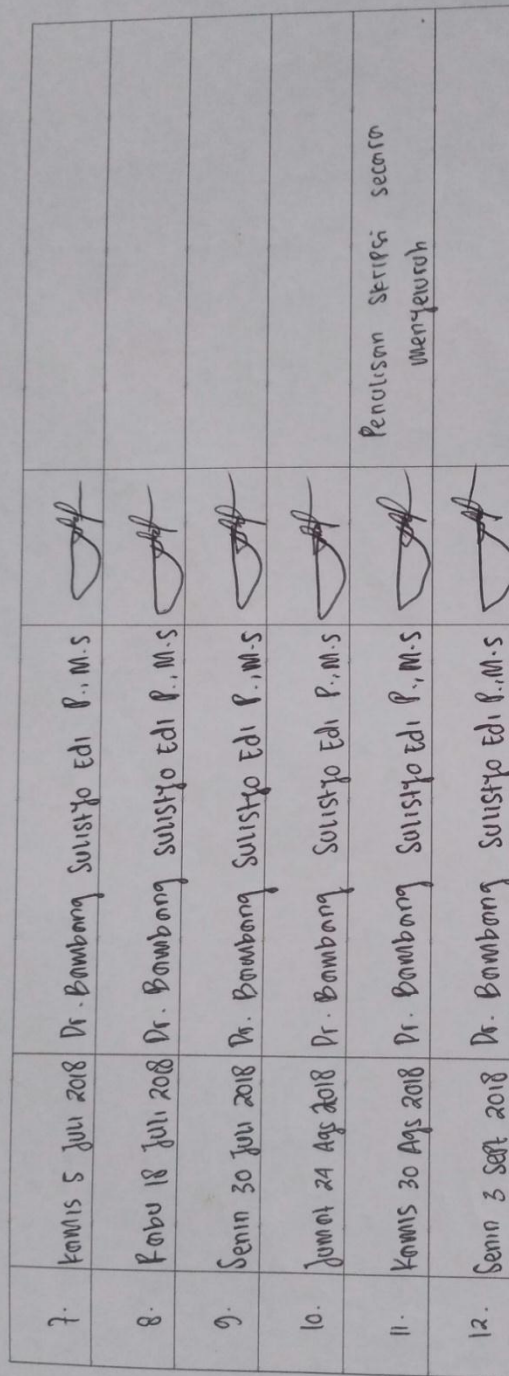 7. Kamis 5 Juli 2018 Dr. Bambang Sulistyo Edi P., M.S
8. Rabu 18 Juli 2018 Dr. Bambang Sulistyo Edi P., M.S
9. Senin 30 Juli 2018 Dr. Bambang Sulistyo Edi P., M.S
10. Jumat 24 Ags 2018 Dr. Bambang Sulistyo Edi P., M.S
11. Kamis 30 Ags 2018 Dr. Bambang Sulistyo Edi P., M.S Penulisan Skripsi secara
menyeluruh
12. Senin 3 Sept 2018 Dr. Bambang Sulistyo Edi P., M.S